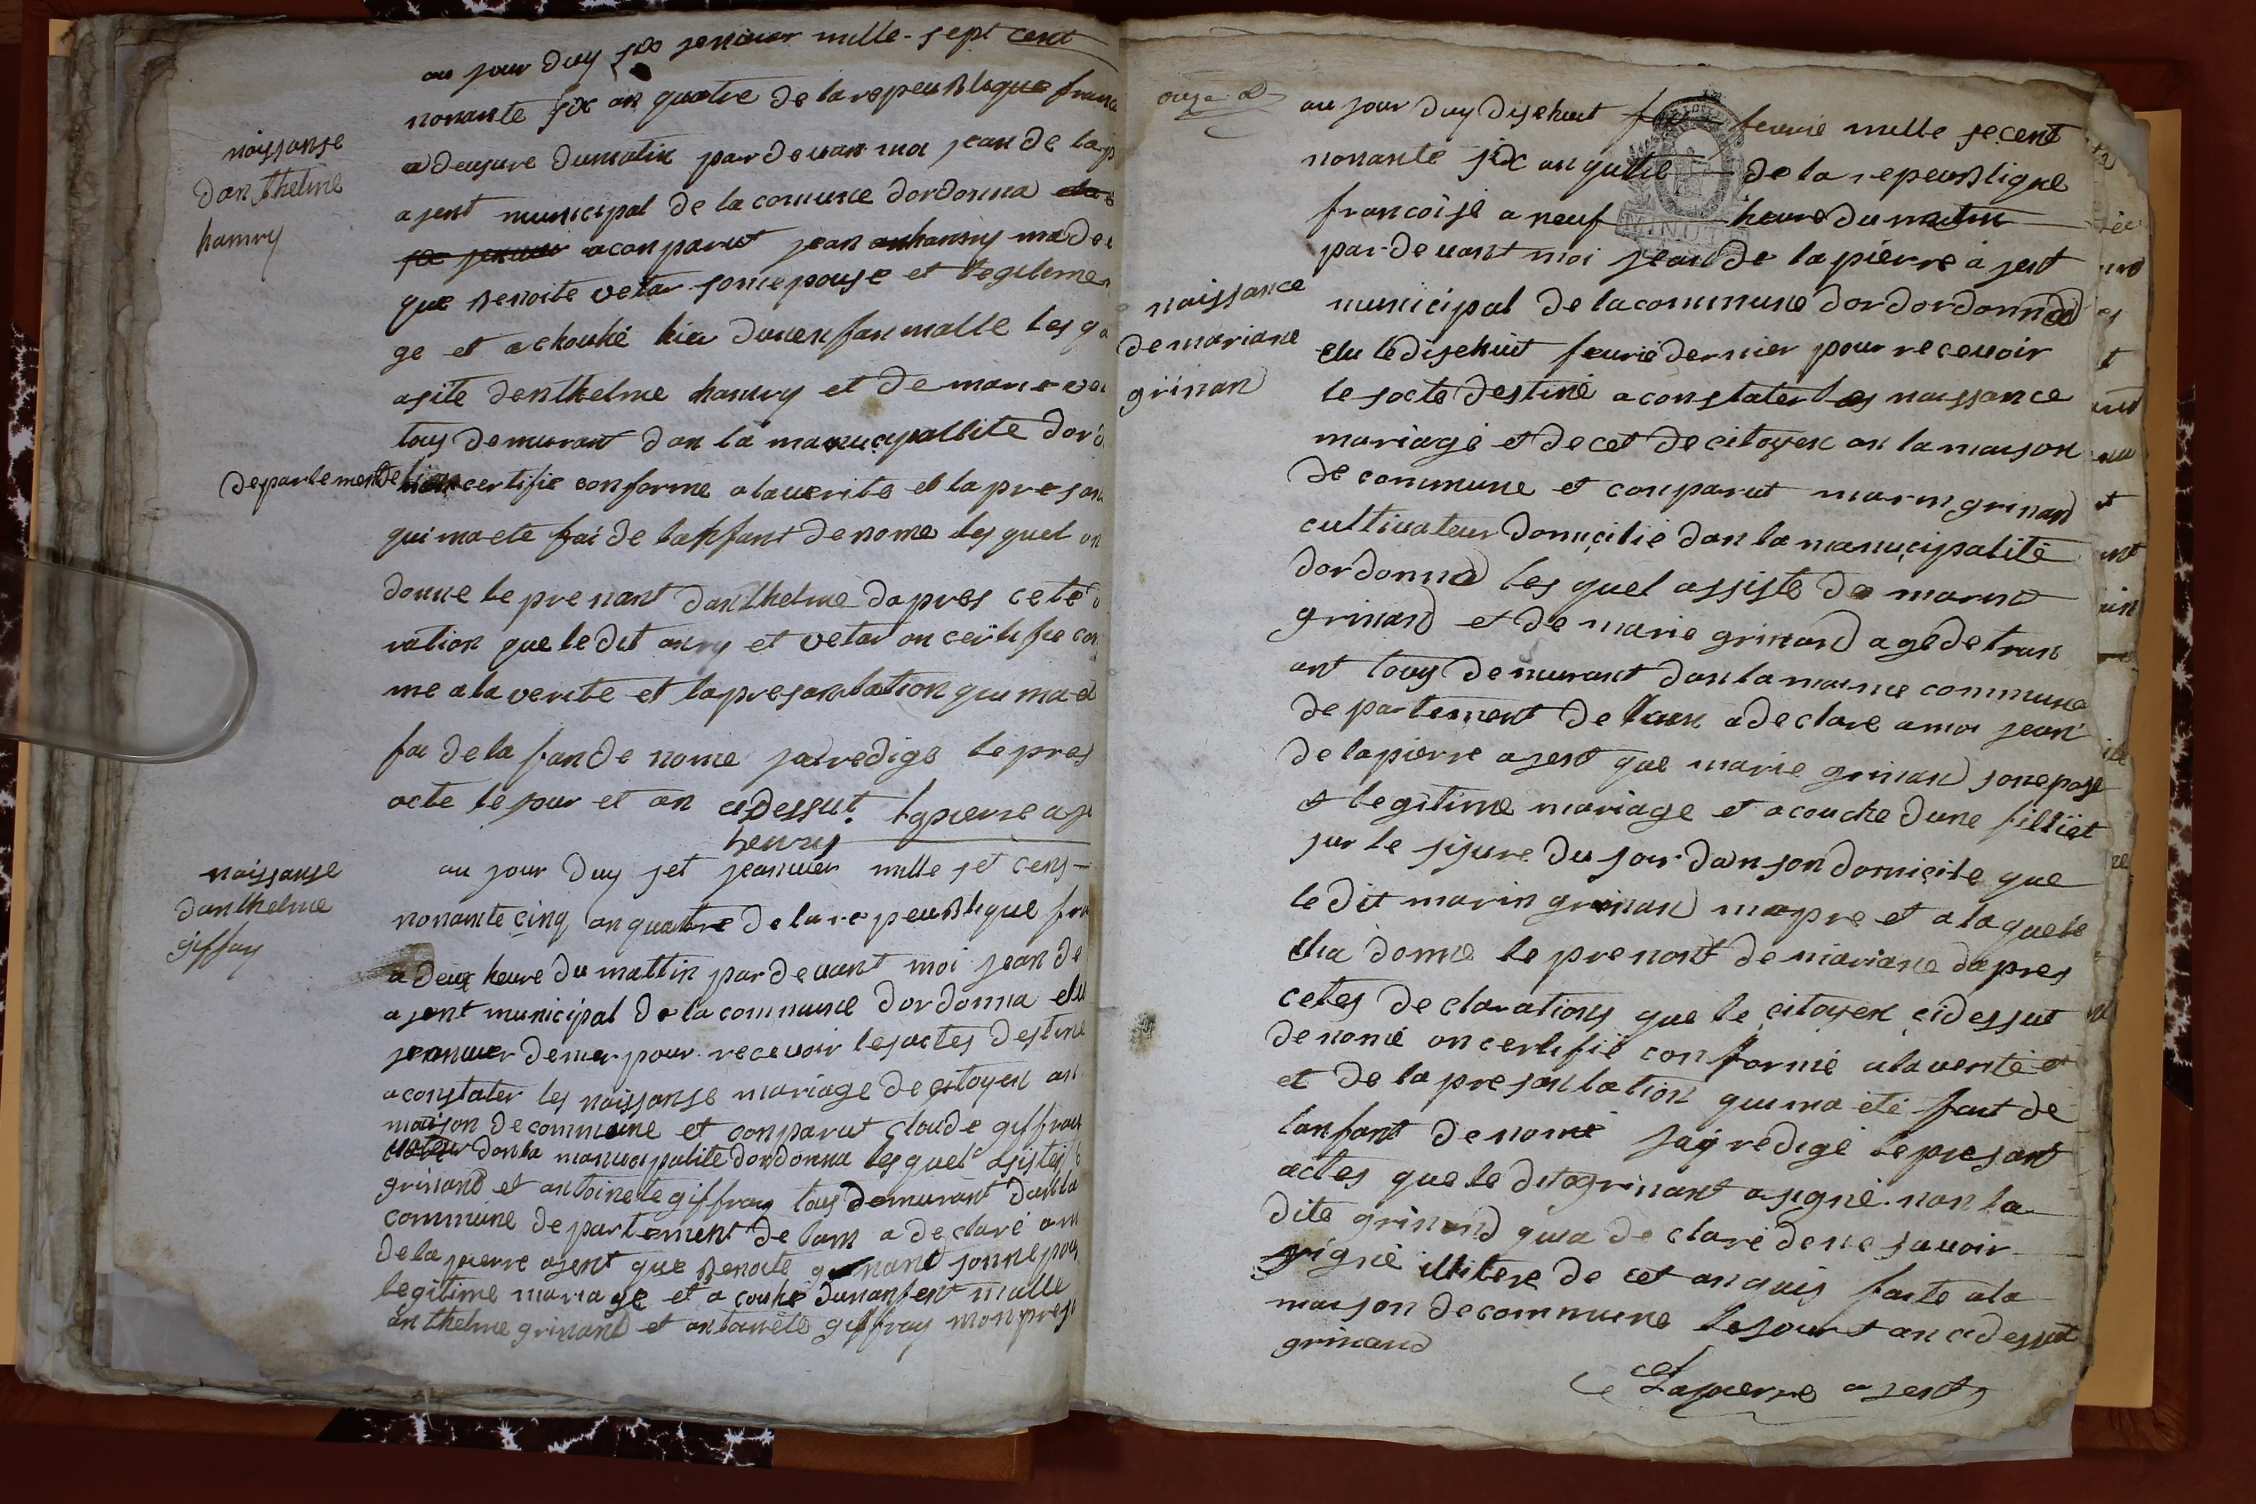 au jour duy six jenvier mille-sept cent
nonante six an quatre de la repeublique franc
a deusure dumatin par devan moi jean de lap
ajent municipal de la comune dordonna
aconparut jean anhanry
que Benoite vetar sonepouse et legiteme
ge et a chouhé hier dunenfan malle les q
asité denthelme hanvry et de marie
tous demurant dan la manucipallité dord
departement de certifie conforme alaverite et la presan
qui ma ete fai de lanfant denome les quel on
donne le prenant danthelme dapres cete
ration que ledit anry et vetar on certifie con
me a la verite et la presantation qui ma et
fai de la fan de nome jai redige le pres
acte le jour et an cidessut. lapierre aj
henry
naissanse
danthelme
hanvry
au jour duy set jeanvier mille set cens
nonante cinq an quatre de la repeublique fra
a deux heure du mattin pardevant moi jean de
ajent municipal de la commune dordonna elu
jeanvier dernier pour recevoir les actes destine
aconstater les naissanse mariage de citoyen an
maison de commune et conparut claude giffray
danla manucipalité dordonna les quel asistes
grinand et antoinete giffray tous demurant danla
commune departement de lain a declaré a m
delapierre ajent que Benoite grinand sonnepou
legitime mariage et a couhé dunanfent malle
anthelme grinand et antoinete giffray mon pres
naissanse
danthelme
giffray
onze
au jour duy disehuit fevrie mille secent
nonante six an quatre de la repeubligue
francoise a neuf heure du matin
par-devant moi jean de lapierre ajent
municipal de la commune dordordonna
elu le disehuit fevrie dernier pour recevoir
le sacte destiné aconstater les naissance
mariage et decet de citoyen an la maison
de commune et conparut marin grinand
cultivateur domicilié dan la manucipalité
dordonna les quel assisté de marin
grinand et de marie grinand agé de tran
ant tous demurant dan la maime commune
departement de lain a declare a moi jean
de lapierre ajent que marie grinand sonepose
et legitime mariage et acouche dune filliet
sur le sisure du soir dan son domicile que
ledit marin grinand mapre et a la quele
elia donne le prenont de mariane dapres
cetes declarations que le citoyen cidessut
denomé on certifié conforme alaverite et
et de la presantation qui ma eté fait de
lanfant denomé jaÿ redigé le presant
actes que ledit grinant asigné non la
dite grinand qui a declaré dene savoir
signé illitere de cet an quis faite ala
maison de commune le jour et an cidessut
grinand
Lapierre ajent
naissance
de mariane
grinan